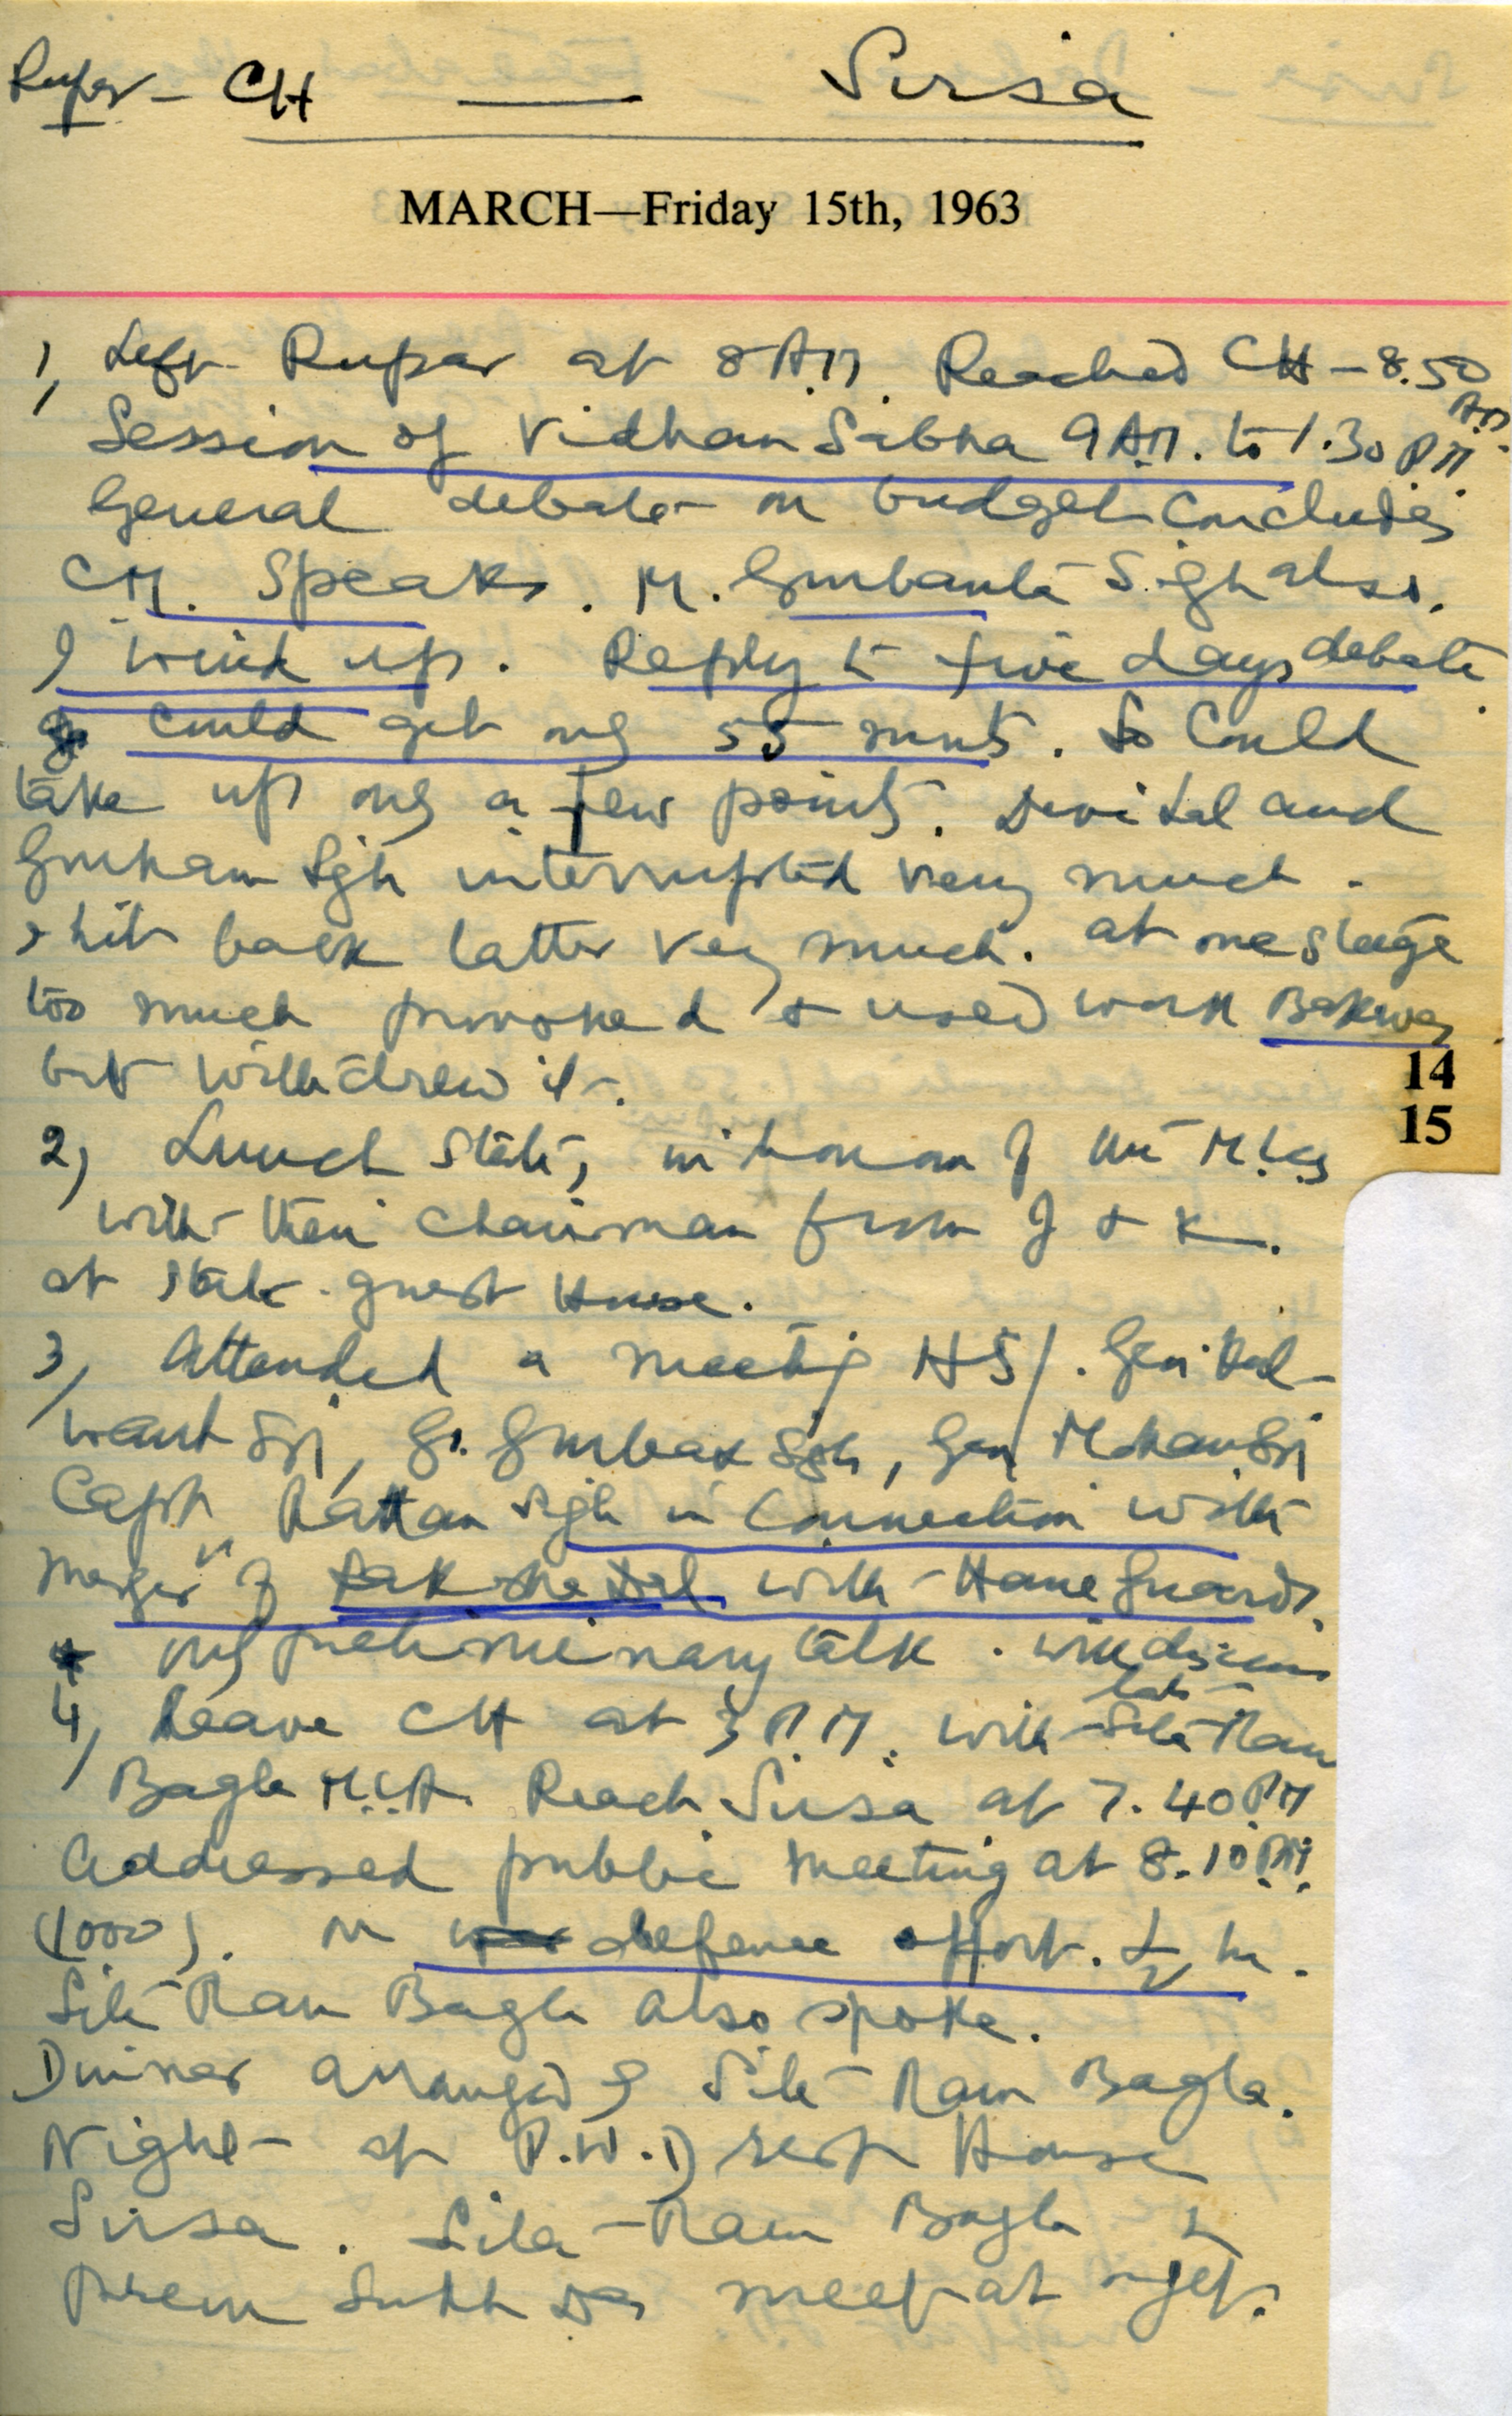 Rupar - CH — Sirsa
MARCH—Friday 15th, 1963
1, Left Rupar at 8 A.M. Reached CH - 8.50
AM
Session of Vidhan Sabha 9 A.M. to 1.30 P.M.
General debate on budget concludes
C.M. Speaks. M. Gurbanta Sigh also.
I wind up. Reply to five days debate
could get only 55 munts. So Could
take up only a few points. Devi Lal and
Gurnam Sgh interrupted very much.
I hit back latter very much. at one stage
too much provoked & used work Bakwas
but withdrew it.
14
15
2, Lunch State, in honour of the M.L.Cs
with their Chairman from J & K.
at State guest House.
3, Attended a meeting HS/. Gen. Kul-
want Sgh, Gurbax Sgh, Gen Mohan Sgh
Capt. Rattan Sgh in Connection with
merger of Rakshe Dal with Home Guards.
only preliminary talk. will discuss
late
4, Leave CH at 3 P.M. with Sita Ram
Bagla M.L.A. Reach Sirsa at 7.40 PM
Addressed public meeting at 8.10 P.M.
(1000). on defence effort. ½ hr.
Sita Ram Bagla also spoke.
Dinner arranged by Sita Ram Bagla.
Night at P.W.D rest House
Sirsa. Sita Ram Bagla &
Prem Sukh Das meet at night.